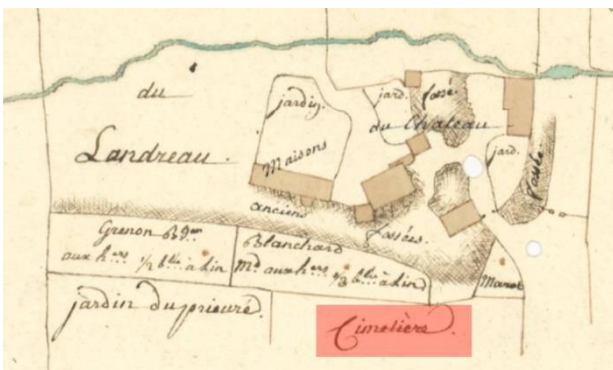 du
Landreau.
jardin
Maisons
jard.
fossé
du Chateau
jard.
fossé
anciens
fossés.
Grenon
aux h.ers 1/2 b.lée à lin
Blanchard
M.d aux h.ers 1/3 b.lée à lin
jardin du prieuré.
Cimetière.